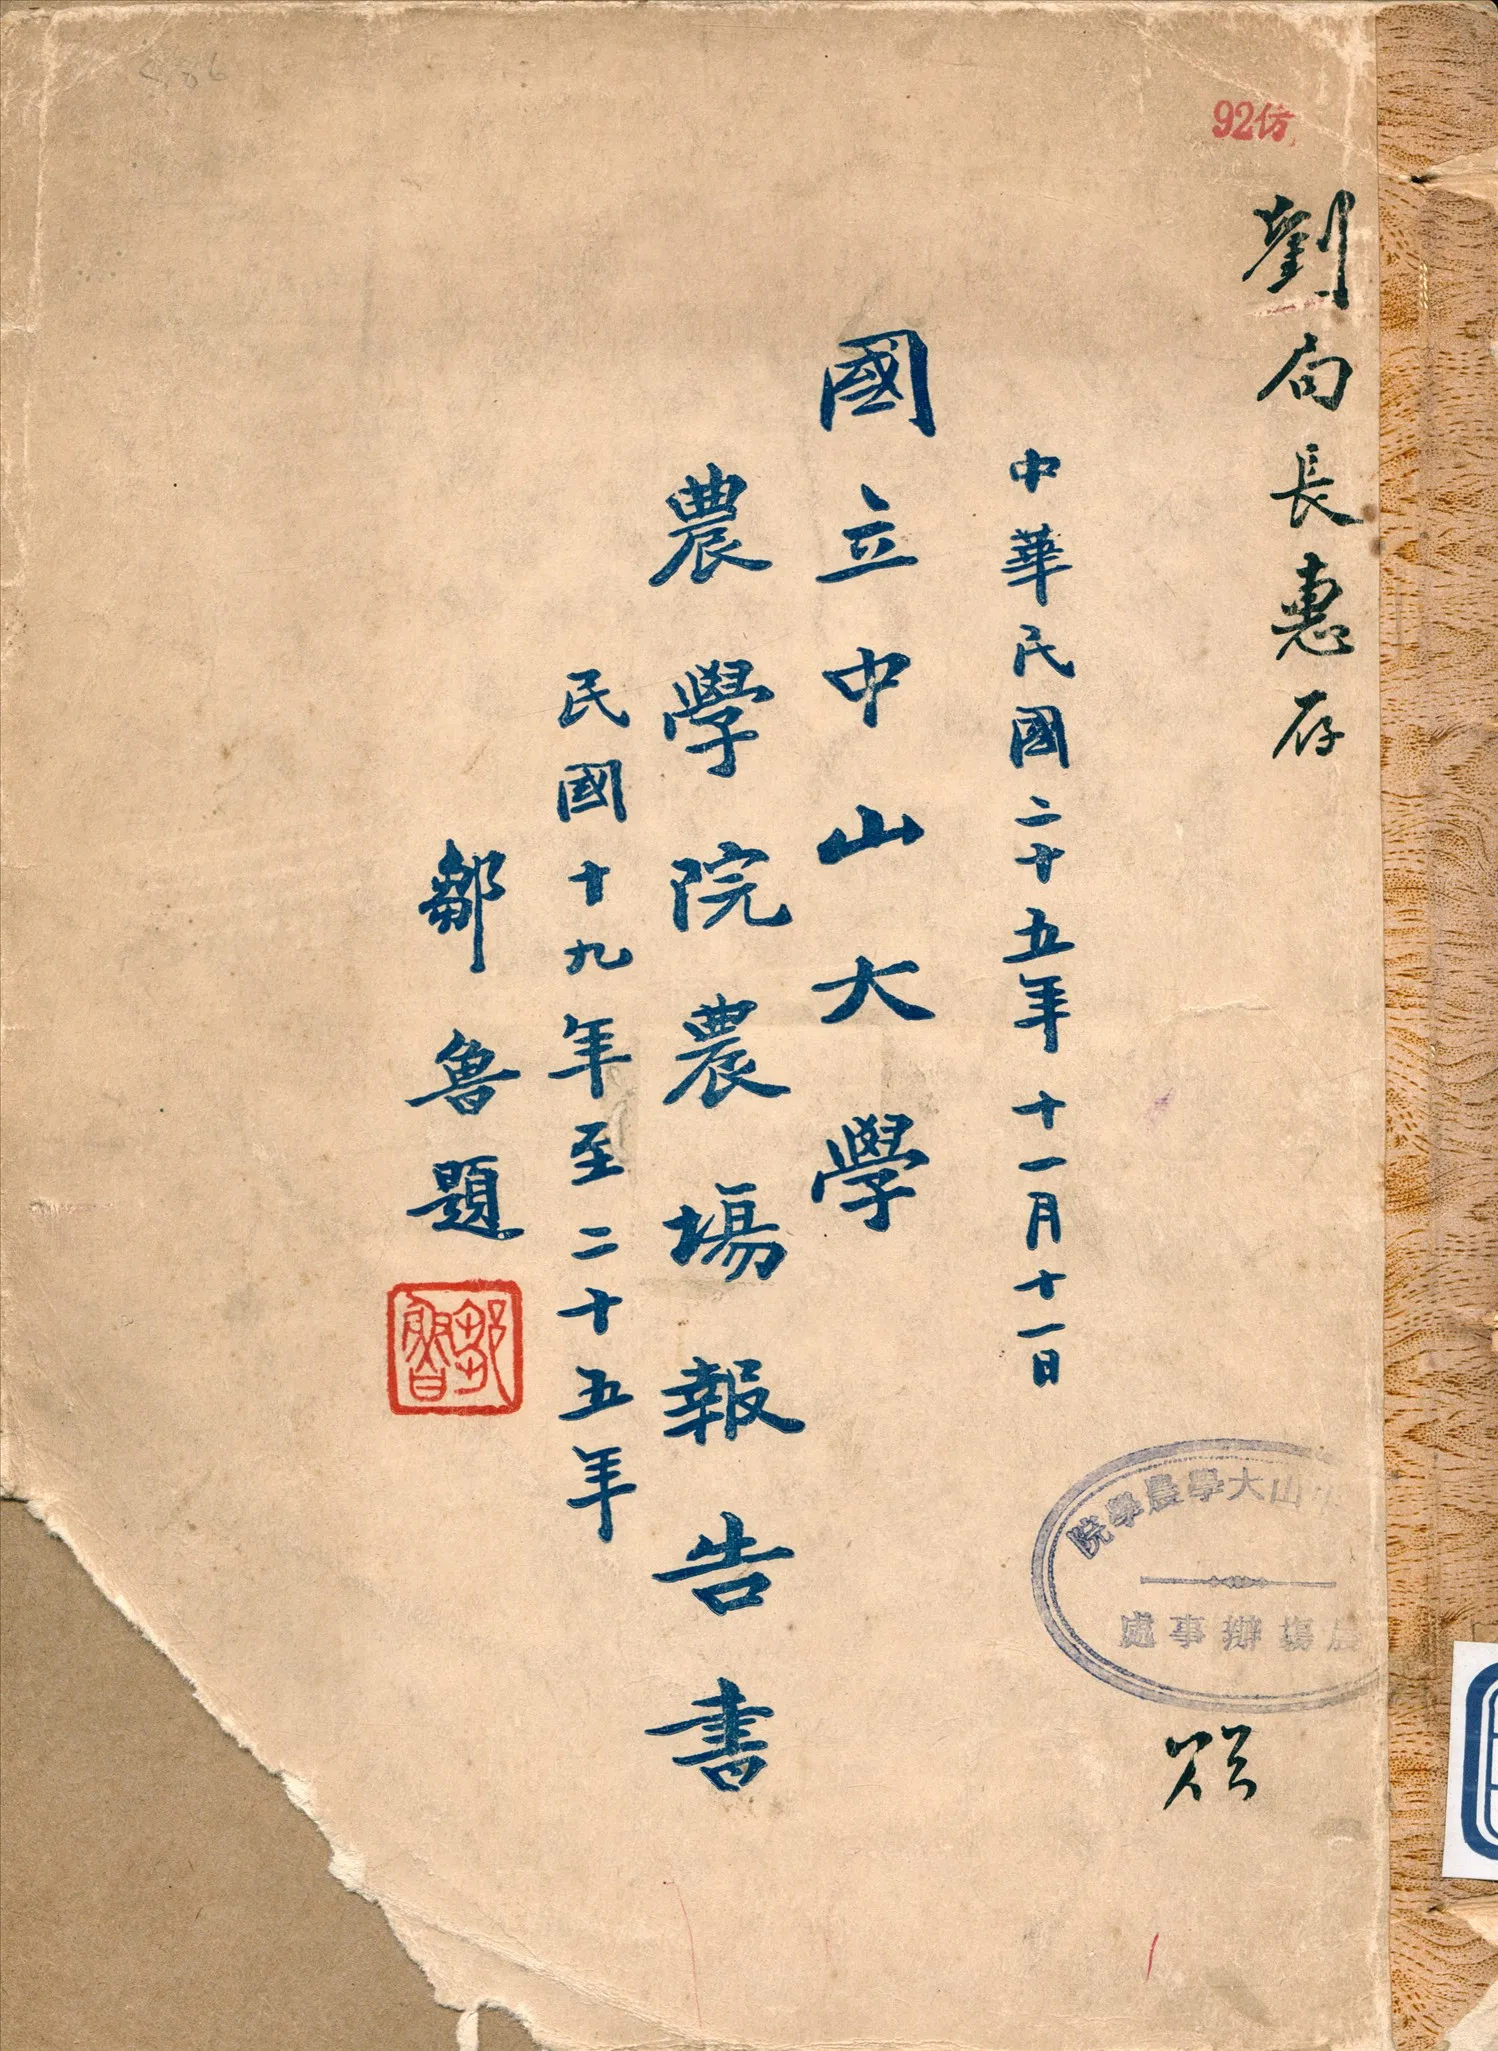 92仿
劉局長惠存
中華民國二十五年十一月十一日
國立中山大學
農學院農場報告書
民國十九年至二十五年
鄒魯題
鄒魯
山大學農學院
農場辦事處